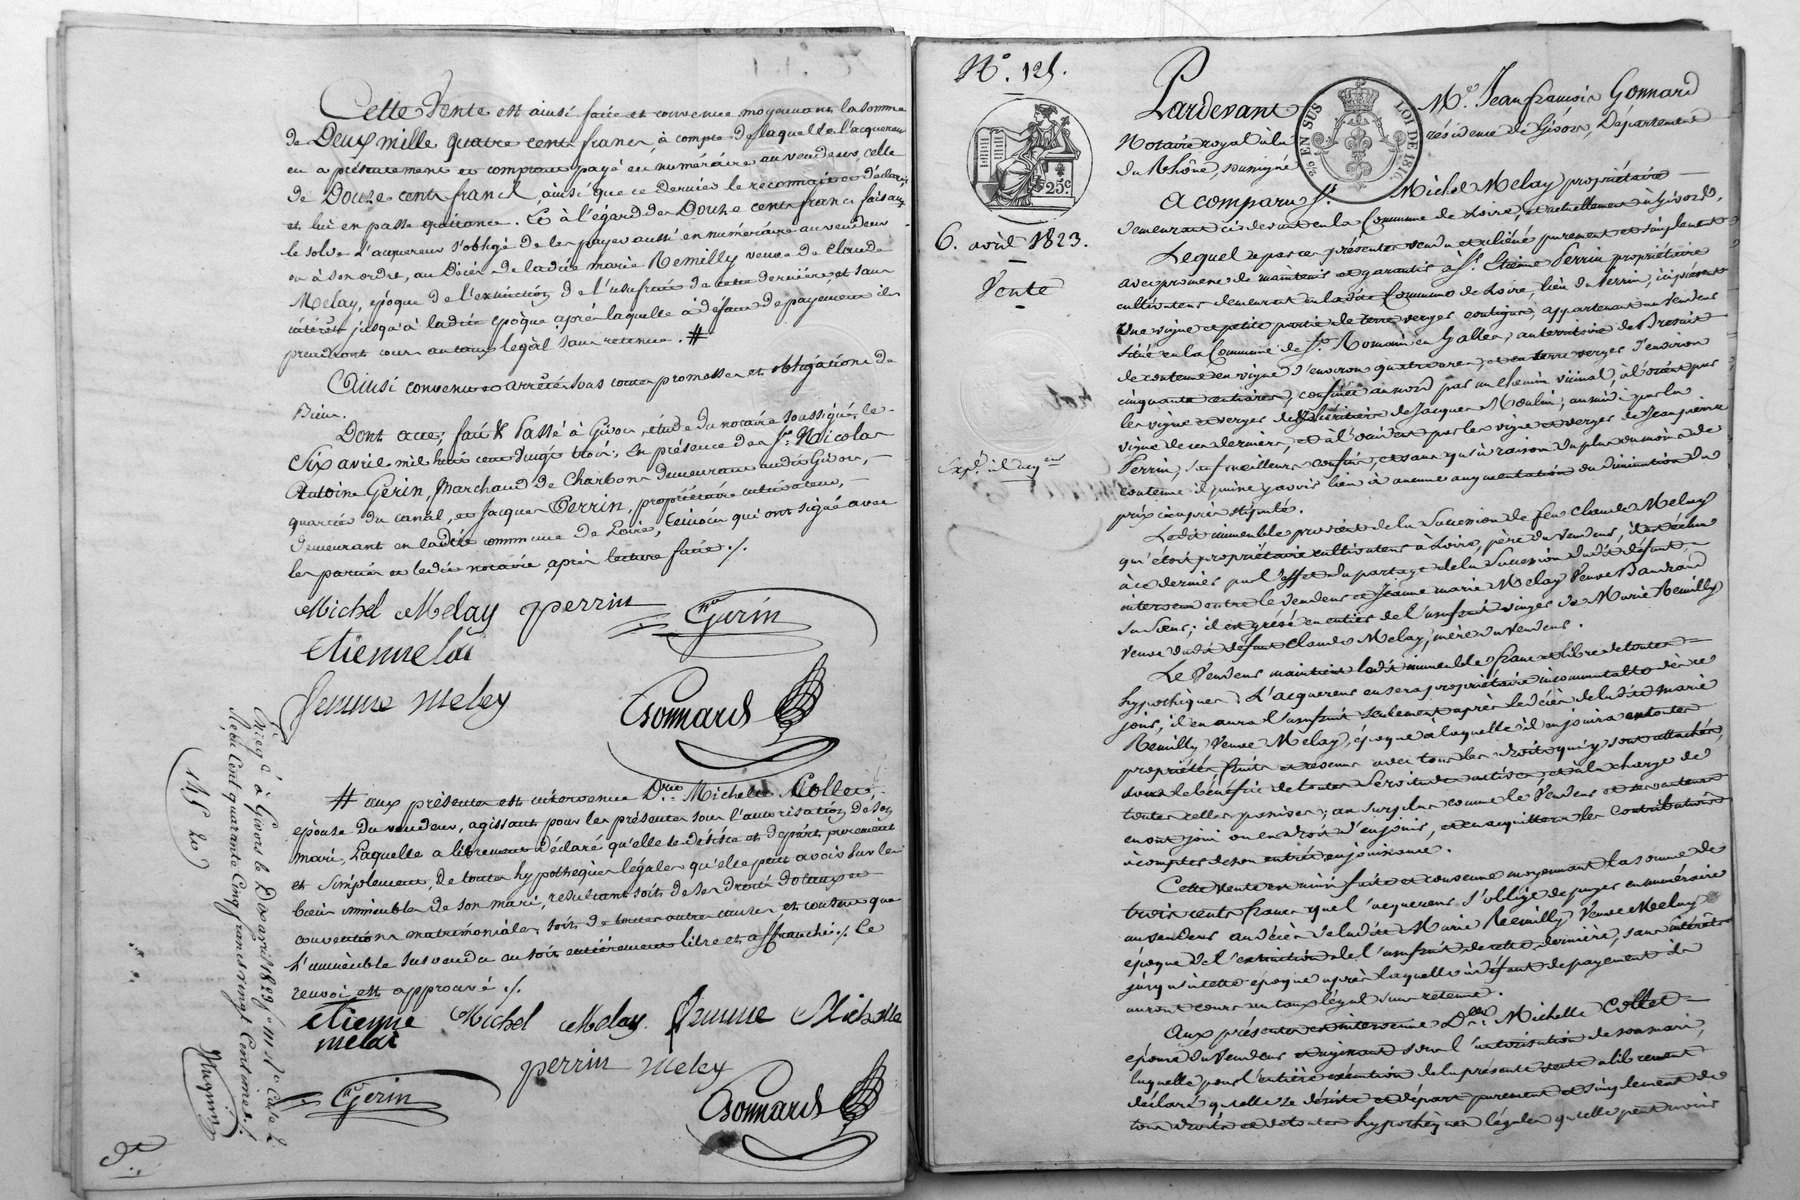 Cette Vente est ainsi faite et convenue moyennant la somme
de Deux mille quatre cents francs, à compte de laquelle l'acquéreur
en a présentement et comptant payé en numéraire au vendeur, celle
de Douze cents francs, ainsi que ce dernier le reconnait et déclare,
et lui en passe quittance. Et à l'égard des Douze cents francs faisant
le solde l'acquereur s'oblige de les payer aussi en numéraire au vendeur
ou à son ordre, au Décès de ladite marie Remilly veuve de Claude
Melay, époque de l'extinction de l'usufruit de cette dernière, et sans
intérêts jusqu'à ladite époque après laquelle à défaut de payement ils
prendront cours au taux légal sans retenue. #
Ainsi convenu et arrêté sous toutes promesses et obligations de
Biens.
Dont acte, fait & Passé à Givors, étude du notaire soussigné, le
Six avril mil huit cent vingt trois, En présence des Srs Nicolas
Antoine Gerin, Marchand de Charbons demeurant audit Givors,
quartier du canal, et Jacques Perrin, propriétaire cultivateur,
demeurant en ladite commune de Loire, témoins qui ont signé avec
les parties et ledit notaire, après lecture faite ./.
Michel Melay perrin Gerin
etienne
femme meley
Gonnard
# aux présentes est intervenue Dme Michelle Collet,
épouse du vendeur, agissant pour les présentes sous l'autorisation de son
mari, Laquelle a librement déclaré qu'elle se désiste et départ purement
et simplement, de toutes hypothèques légales qu'elle peut avoir sur les
biens immeubles de son mari, résultant soit de ses droits dotaux et
conventions matrimoniales, soit de toutes autres causes et consent que
l'immeuble susvendu en soit entièrement libre et affranchi ./. Ce
renvoi est approuvé ./.
etienne Michel Melay femme Michelle
melai
perrin meley
Gerin Gonnard
à Givors le Douze avril 1823
Reçu Cent quarante Cinq francs vingt Centimes ./.
145 20
No. 125.
25c
EN SUS LOI DE 1816
6. avril 1823.
Vente
Pardevant Me. Jean françois Gonnard
Notaire royal à la résidence de Givors, Département
du Rhône, soussigné
A comparu Sr. Michel Melay propriétaire
demeurant ci devant en la Commune de Loire, et actuellement à Givors,
Lequel a par ces présentes vendu et aliéné purement et simplement
avec promesse de maintenir et garantir à Sr. Etienne Perrin propriétaire
cultivateur demeurant en ladite Commune de Loire, lieu du Perrin, ici présent
Une vigne et petite partie de terre verger contigue, appartenant au Vendeur
située en la Commune de St. Romain en Gallier, au territoire de
de contenue en vigne d'environ quatre ares, et en terre verger d'environ
cinquante centiares, confinée au nord par un chemin vicinal, à l'orient par
les vigne et verger des héritiers de Jacques Moulin, au midi par la
vigne de ces derniers, et à l'occident par les vigne et verger de Jean pierre
Perrin, sauf meilleurs confins, et sans qu'à raison du plus ou moins de
contenue il puisse y avoir lieu à aucune augmentation ou diminution du
prix ci après stipulé.
Ledit immeuble provient de la Succession de feu Claude Melay
qui étoit propriétaire cultivateur à Loire, père du vendeur, il est échu
à ce dernier par l'effet du partage de la Succession dudit défunt
intervenu entre le vendeur et Jeanne marie Melay Veuve Baudrand
sa Sœur; il est grévé en entier de l'usufruit viager de Marie Remilly
veuve dudit défunt Claude Melay, mère du vendeur.
Le Vendeur maintient ledit immeuble franc et libre de toutes
hypothèques. L'acquereur en sera propriétaire incommutable dès ce
jour, il en aura l'usufruit seulement après le décès de ladite marie
Remilly Veuve Melay, époque à laquelle il en jouira en toute
propriété fruits et revenus avec tous les droits qui y sont attachés,
sous le bénéfice de toutes servitudes actives, et à la charge de
toutes celles passives; au surplus comme le Vendeur et ses auteurs
en ont joui ou eu droit d'en jouir, et en acquittera les contributions
à compter de son entrée en jouissance.
Cette vente est ainsi faite et convenue moyennant la somme de
trois cents francs que l'acquereur s'oblige de payer en numéraire
au vendeur au décès de ladite Marie Remilly Veuve Melay
époque de l'extinction de l'usufruit de cette dernière, sans intérêts
jusqu'à cette époque après laquelle à défaut de payement ils
auront cours au taux légal sans retenue.
Aux présentes est intervenue Dme Michelle Collet
épouse du Vendeur et agissant sous l'autorisation de son mari,
laquelle pour l'entière exécution de la présente vente a librement
déclaré qu'elle se désiste et départ purement et simplement de
tous droits et de toutes hypothèques légales qu'elle peut avoir